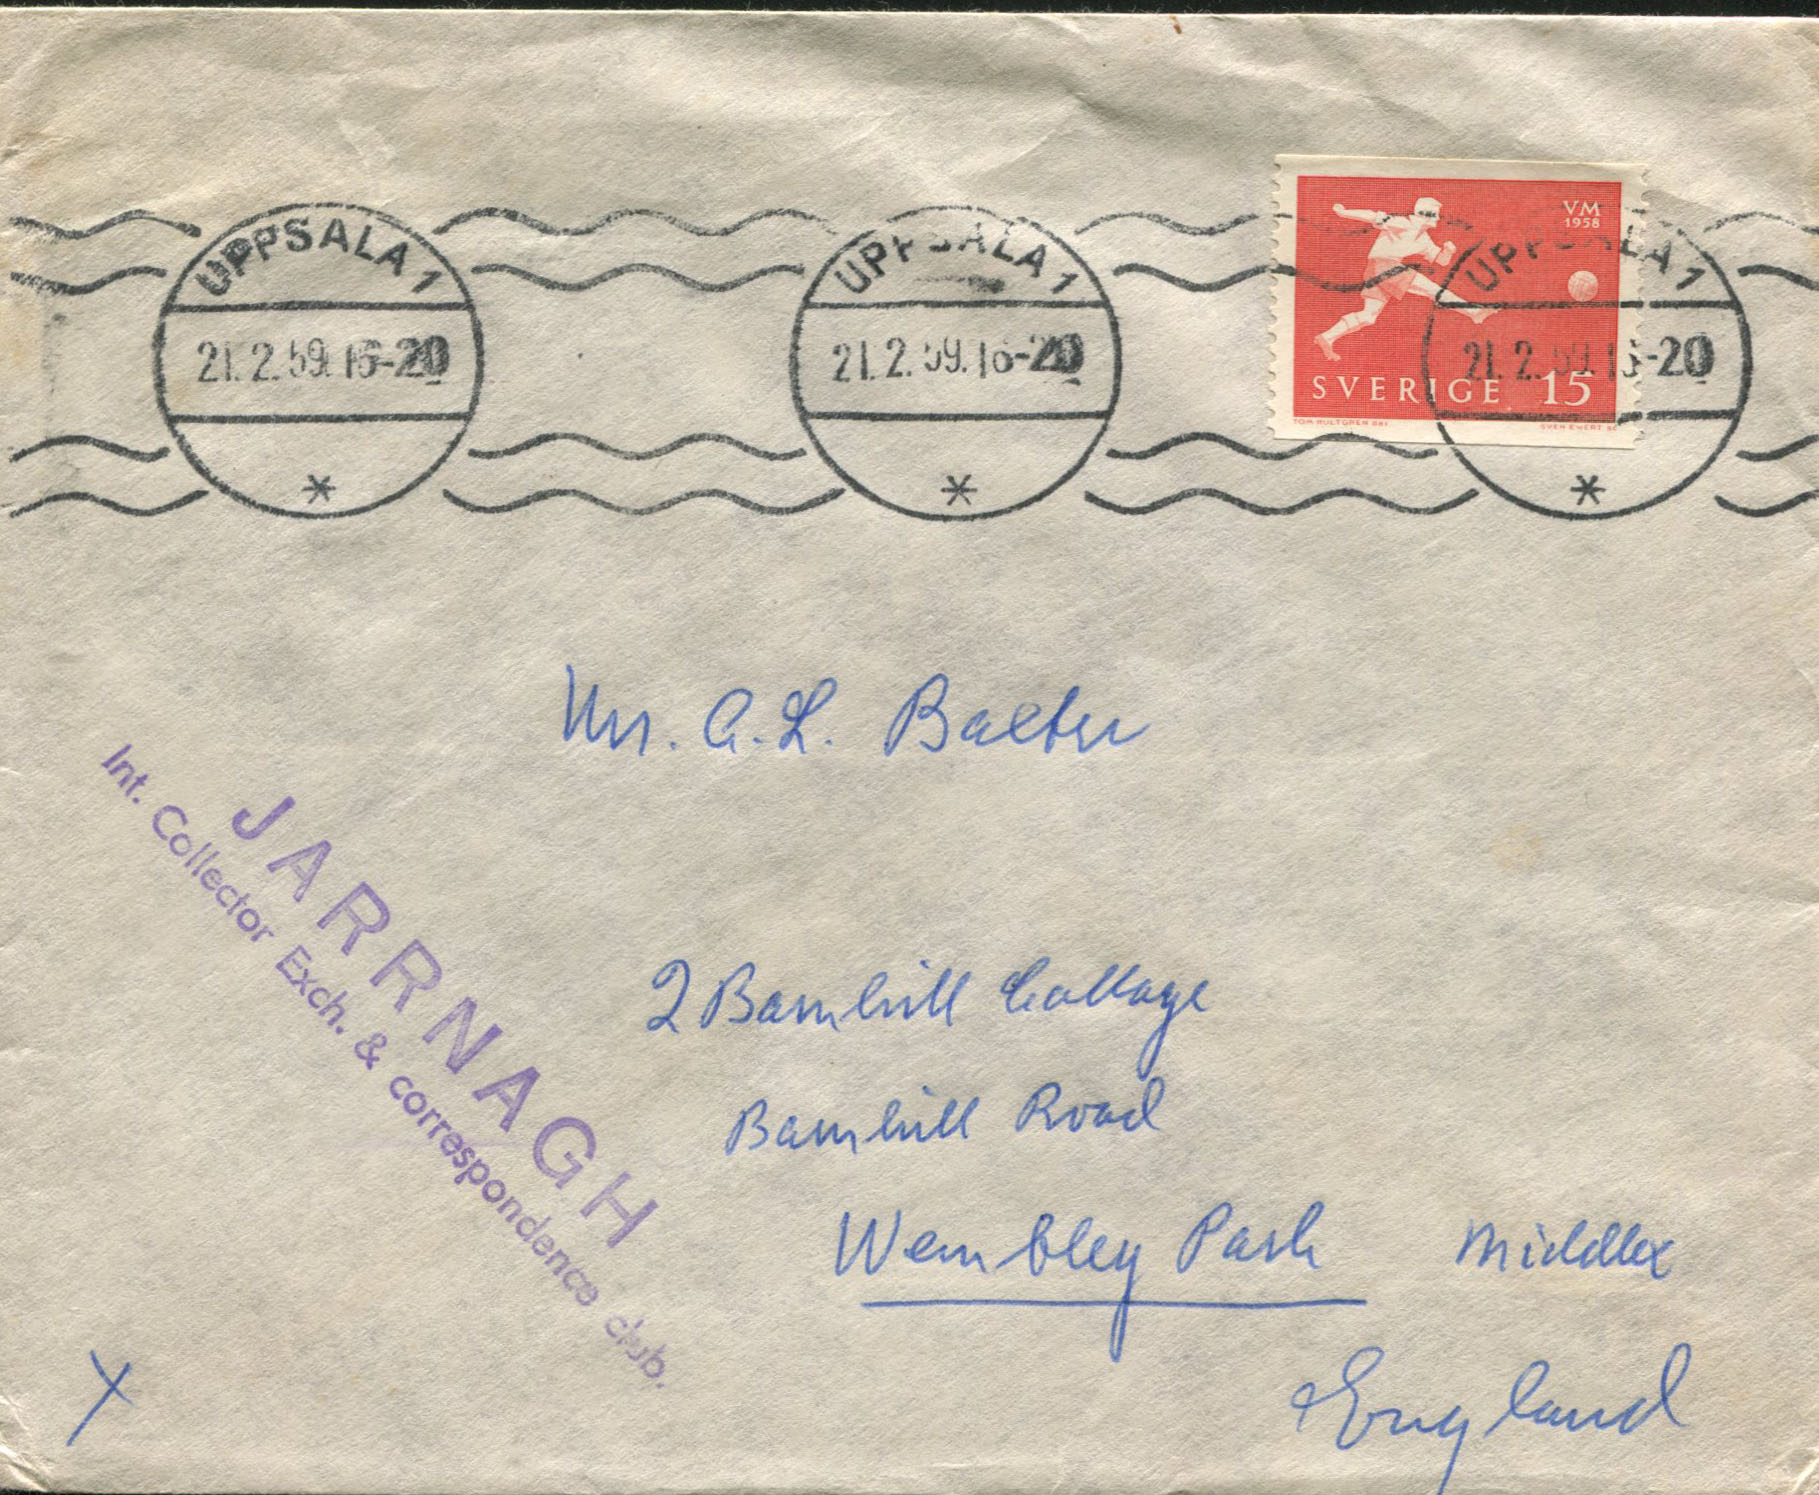 UPPSALA 1
21.2.59.16-20
UPPSALA 1
21.2.59.16-20
UPPSALA 1
21.2.59.16-20
VM
1958
SVERIGE 15
TOM HULTGREN DEL
SVEN EWERT SC
Mr. A.L. Baxter
2 Barnhill Cottage
Barnhill Road
Wembley Park Middlex
England
JARRNAGH
Int. Collector Exch. & correspondence club.
X